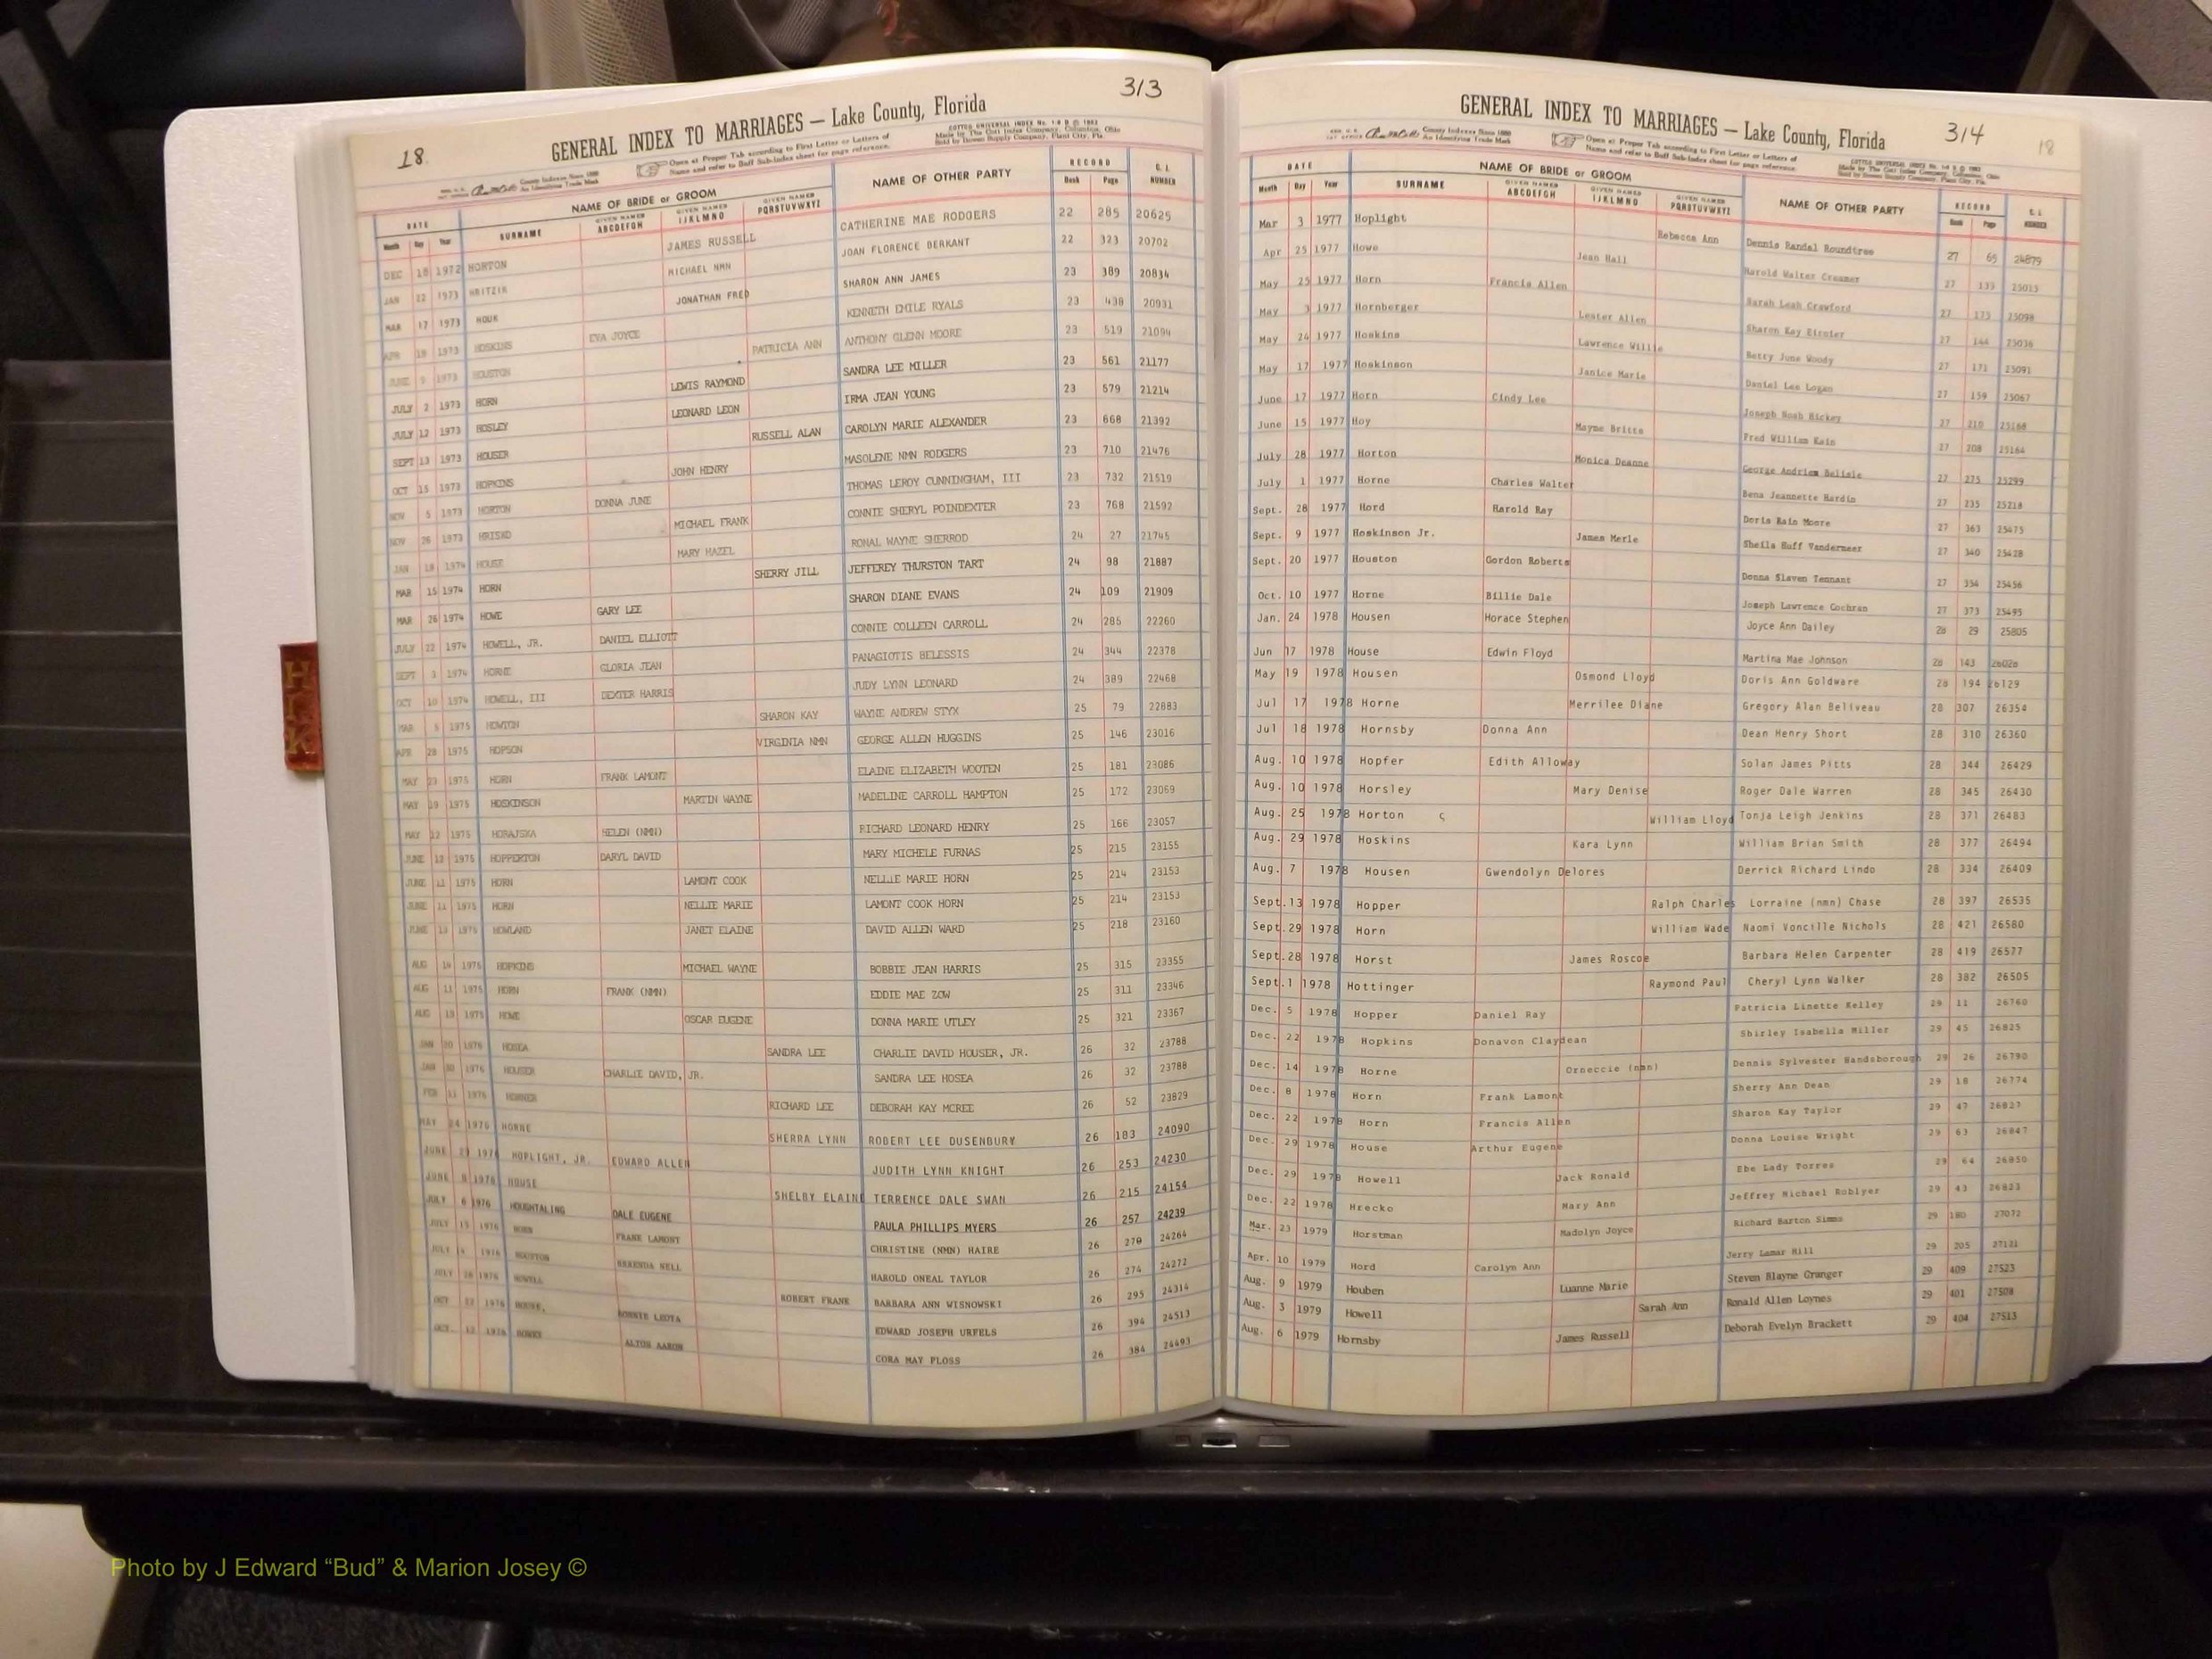 313
18.
GENERAL INDEX TO MARRIAGES — Lake County, Florida
Open at Proper Tab according to First Letter or Letters of
Name and refer to Buff Sub-Index sheet for page reference.
DATE NAME OF BRIDE or GROOM NAME OF OTHER PARTY RECORD C. I. NUMBER
Month Day Year SURNAME GIVEN NAMES ABCDEFGH GIVEN NAMES IJKLMNO GIVEN NAMES PQRSTUVWXYZ Book Page
DEC 18 1972 HORTON JAMES RUSSELL CATHERINE MAE RODGERS 22 285 20625
JAN 22 1973 HRITZIK MICHAEL NMN JOAN FLORENCE BERKANT 22 323 20702
MAR 17 1973 HOUK JONATHAN FRED SHARON ANN JAMES 23 389 20834
APR 19 1973 HOSKINS EVA JOYCE KENNETH EMILE RYALS 23 438 20931
JUNE 9 1973 HOUSTON PATRICIA ANN ANTHONY GLENN MOORE 23 519 21094
JULY 2 1973 HORN LEWIS RAYMOND SANDRA LEE MILLER 23 561 21177
JULY 12 1973 HOSLEY LEONARD LEON IRMA JEAN YOUNG 23 579 21214
SEPT 13 1973 HOUSER RUSSELL ALAN CAROLYN MARIE ALEXANDER 23 668 21392
OCT 15 1973 HOPKINS JOHN HENRY MASOLENE NMN RODGERS 23 710 21476
NOV 5 1973 HORTON DONNA JUNE THOMAS LEROY CUNNINGHAM, III 23 732 21519
NOV 26 1973 HRISKO MICHAEL FRANK CONNIE SHERYL POINDEXTER 23 768 21592
JAN 18 1974 HOUSE MARY HAZEL RONAL WAYNE SHERROD 24 27 21745
MAR 15 1974 HORN SHERRY JILL JEFFEREY THURSTON TART 24 98 21887
MAR 26 1974 HOWE GARY LEE SHARON DIANE EVANS 24 109 21909
JULY 22 1974 HOWELL, JR. DANIEL ELLIOTT CONNIE COLLEEN CARROLL 24 285 22260
SEPT 3 1974 HORNE GLORIA JEAN PANAGIOTIS BELESSIS 24 344 22378
OCT 10 1974 HOWELL, III DEXTER HARRIS JUDY LYNN LEONARD 24 389 22468
MAR 5 1975 HOWTON SHARON KAY WAYNE ANDREW STYX 25 79 22883
APR 28 1975 HOPSON VIRGINIA NMN GEORGE ALLEN HUGGINS 25 146 23016
MAY 23 1975 HORN FRANK LAMONT ELAINE ELIZABETH WOOTEN 25 181 23086
MAY 19 1975 HOSKINSON MARTIN WAYNE MADELINE CARROLL HAMPTON 25 172 23069
MAY 12 1975 HORAJSKA HELEN (NMN) RICHARD LEONARD HENRY 25 166 23057
JUNE 12 1975 HOPPERTON DARYL DAVID MARY MICHELE FURNAS 25 215 23155
JUNE 11 1975 HORN LAMONT COOK NELLIE MARIE HORN 25 214 23153
JUNE 11 1975 HORN NELLIE MARIE LAMONT COOK HORN 25 214 23153
JUNE 13 1975 HOWLAND JANET ELAINE DAVID ALLEN WARD 25 218 23160
AUG 14 1975 HOPKINS MICHAEL WAYNE BOBBIE JEAN HARRIS 25 315 23355
AUG 11 1975 HORN FRANK (NMN) EDDIE MAE ZOW 25 311 23346
AUG 19 1975 HOWE OSCAR EUGENE DONNA MARIE UTLEY 25 321 23367
JAN 20 1976 HOSEA SANDRA LEE CHARLIE DAVID HOUSER, JR. 26 32 23788
JAN 20 1976 HOUSER CHARLIE DAVID, JR. SANDRA LEE HOSEA 26 32 23788
FEB 11 1976 HORNER RICHARD LEE DEBORAH KAY MCREE 26 52 23829
MAY 24 1976 HORNE SHERRA LYNN ROBERT LEE DUSENBURY 26 183 24090
JUNE 29 1976 HOPLIGHT, JR. EDWARD ALLEN JUDITH LYNN KNIGHT 26 253 24230
JUNE 8 1976 HOUSE SHELBY ELAINE TERRENCE DALE SWAN 26 215 24154
JULY 6 1976 HOUGHTALING DALE EUGENE PAULA PHILLIPS MYERS 26 257 24239
JULY 15 1976 HORN FRANK LAMONT CHRISTINE (NMN) HAIRE 26 270 24264
JULY 1976 HOUSTON BRENDA NELL HAROLD ONEAL TAYLOR 26 274 24272
JULY 28 1976 HOWELL ROBERT FRANK BARBARA ANN WISNOWSKI 26 295 24314
OCT 22 1976 HOUSE, BONNIE LEOTA EDWARD JOSEPH URFELS 26 394 24513
OCT. 12 1976 ALTON AARON CORA MAY PLOSS 26 384 24493
314
18
GENERAL INDEX TO MARRIAGES — Lake County, Florida
Open at Proper Tab according to First Letter or Letters of
Name and refer to Buff Sub-Index sheet for page reference.
DATE NAME OF BRIDE or GROOM NAME OF OTHER PARTY RECORD C. I. NUMBER
Month Day Year SURNAME GIVEN NAMES ABCDEFGH GIVEN NAMES IJKLMNO GIVEN NAMES PQRSTUVWXYZ Book Page
Mar 3 1977 Hoplight Rebecca Ann Dennis Randal Roundtree 27 65 24879
Apr 25 1977 Howe Jean Hall Harold Walter Creamer 27 133 25015
May 25 1977 Horn Francis Allen Sarah Leah Crawford 27 175 25098
May 3 1977 Hornberger Lester Allen Sharon Kay 27 144 25036
May 24 1977 Hoskins Lawrence Willie Betty June Woody 27 171 25091
May 17 1977 Hoskinson Janice Marie Daniel Lee Logan 27 159 25067
June 17 1977 Horn Cindy Lee Joseph Noah Hickey 27 210 25168
June 15 1977 Hoy Mayne Britts Fred William Kain 27 208 25164
July 28 1977 Horton Monica Deanne George Andrien Belisle 27 275 25299
July 1 1977 Horne Charles Walter Bena Jeannette Hardin 27 235 25218
Sept. 28 1977 Hord Harold Ray Doris Rain Moore 27 363 25475
Sept. 9 1977 Hoskinson Jr. James Merle Sheila Huff Vandermeer 27 340 25428
Sept. 20 1977 Houston Gordon Roberts Donna Slaven Tennant 27 354 25456
Oct. 10 1977 Horne Billie Dale Joseph Lawrence Cochran 27 373 25495
Jan. 24 1978 Housen Horace Stephen Joyce Ann Dailey 28 29 25805
Jun 17 1978 House Edwin Floyd Martina Mae Johnson 28 143 26028
May 19 1978 Housen Osmond Lloyd Doris Ann Goldware 28 194 26129
Jul 17 1978 Horne Merrilee Diane Gregory Alan Beliveau 28 307 26354
Jul 18 1978 Hornsby Donna Ann Dean Henry Short 28 310 26360
Aug. 10 1978 Hopfer Edith Alloway Solan James Pitts 28 344 26429
Aug. 10 1978 Horsley Mary Denise Roger Dale Warren 28 345 26430
Aug. 25 1978 Horton William Lloyd Tonja Leigh Jenkins 28 371 26483
Aug. 29 1978 Hoskins Kara Lynn William Brian Smith 28 377 26494
Aug. 7 1978 Housen Gwendolyn Delores Derrick Richard Lindo 28 334 26409
Sept. 13 1978 Hopper Ralph Charles Lorraine (nmn) Chase 28 397 26535
Sept. 29 1978 Horn William Wade Naomi Voncille Nichols 28 421 26580
Sept. 28 1978 Horst James Roscoe Barbara Helen Carpenter 28 419 26577
Sept. 1 1978 Hottinger Raymond Paul Cheryl Lynn Walker 28 382 26505
Dec. 5 1978 Hopper Daniel Ray Patricia Linette Kelley 29 11 26760
Dec. 22 1978 Hopkins Donavon Claydean Shirley Isabella Miller 29 45 26825
Dec. 14 1978 Horne Orneccie (nmn) Dennis Sylvester Handsborough 29 26 26790
Dec. 8 1978 Horn Frank Lamont Sherry Ann Dean 29 18 26774
Dec. 22 1978 Horn Francis Allen Sharon Kay Taylor 29 47 26827
Dec. 29 1978 House Arthur Eugene Donna Louise Wright 29 63 26847
Dec. 29 1978 Howell Jack Ronald Ebe Lady Porres 29 64 26850
Dec. 22 1978 Hrecko Mary Ann Jeffrey Michael Roblyer 29 43 26823
Mar. 23 1979 Horstman Madolyn Joyce Richard Barton Simms 29 180 27072
Apr. 10 1979 Hord Carolyn Ann Jerry Lamar Hill 29 205 27121
Aug. 9 1979 Houben Luanne Marie Steven Blayne Granger 29 409 27523
Aug. 3 1979 Howell Sarah Ann Ronald Allen Loynes 29 401 27508
Aug. 6 1979 Hornsby James Russell Deborah Evelyn Brackett 29 404 27515
H
I
K
Photo by J Edward “Bud” & Marion Josey ©